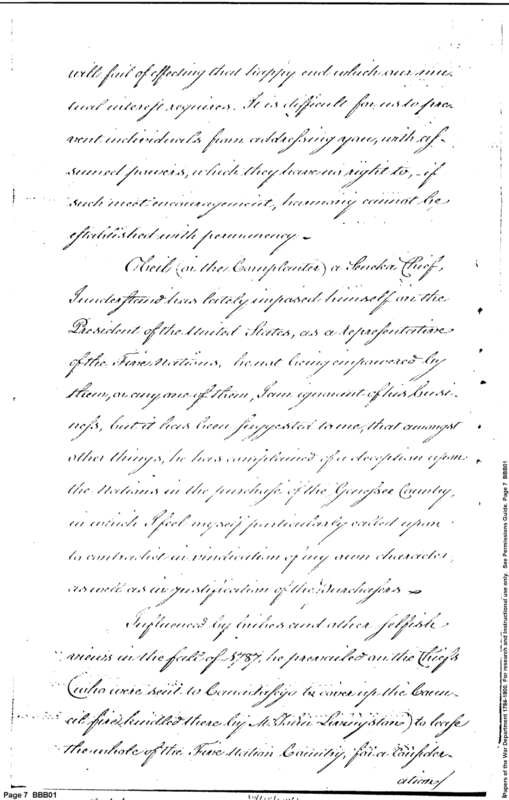 will fail of effecting that happy end which our mu-
tual interest requires. It is difficult for us to pre-
vent individuals from addressing you, with as-
sumed powers, which they have no right to, – if
such meet encouragement, harmony cannot be
established with permanency –
Obeil (or the Cornplanter) a Seneka Chief,
I understand has lately imposed himself on the
President of the United States, as a representative
of the Five Nations, he not being empowered by
them, or any one of them, I am ignorant of his busi-
ness, but it has been suggested to me, that amongst
other things, he has complained of a deception upon
the Nations in the purchase of the Genessee Country,
in which I feel myself particularly called upon
to contradict in vindication of my own character,
as well as in justification of the Purchasers –
Influenced by bribes and other selfish
views in the fall of 1787, he prevailed on the Chiefs
(who were sent to to cover up the Coun-
cil fire kindled there by Mr. John Livingston) to lease
the whole of the Five Nation Country, for a consider-
ation
Page 7 BBB01
Papers of the War Department 1784-1800. For research and instructional use only. See Permissions Guide. Page 7 BBB01